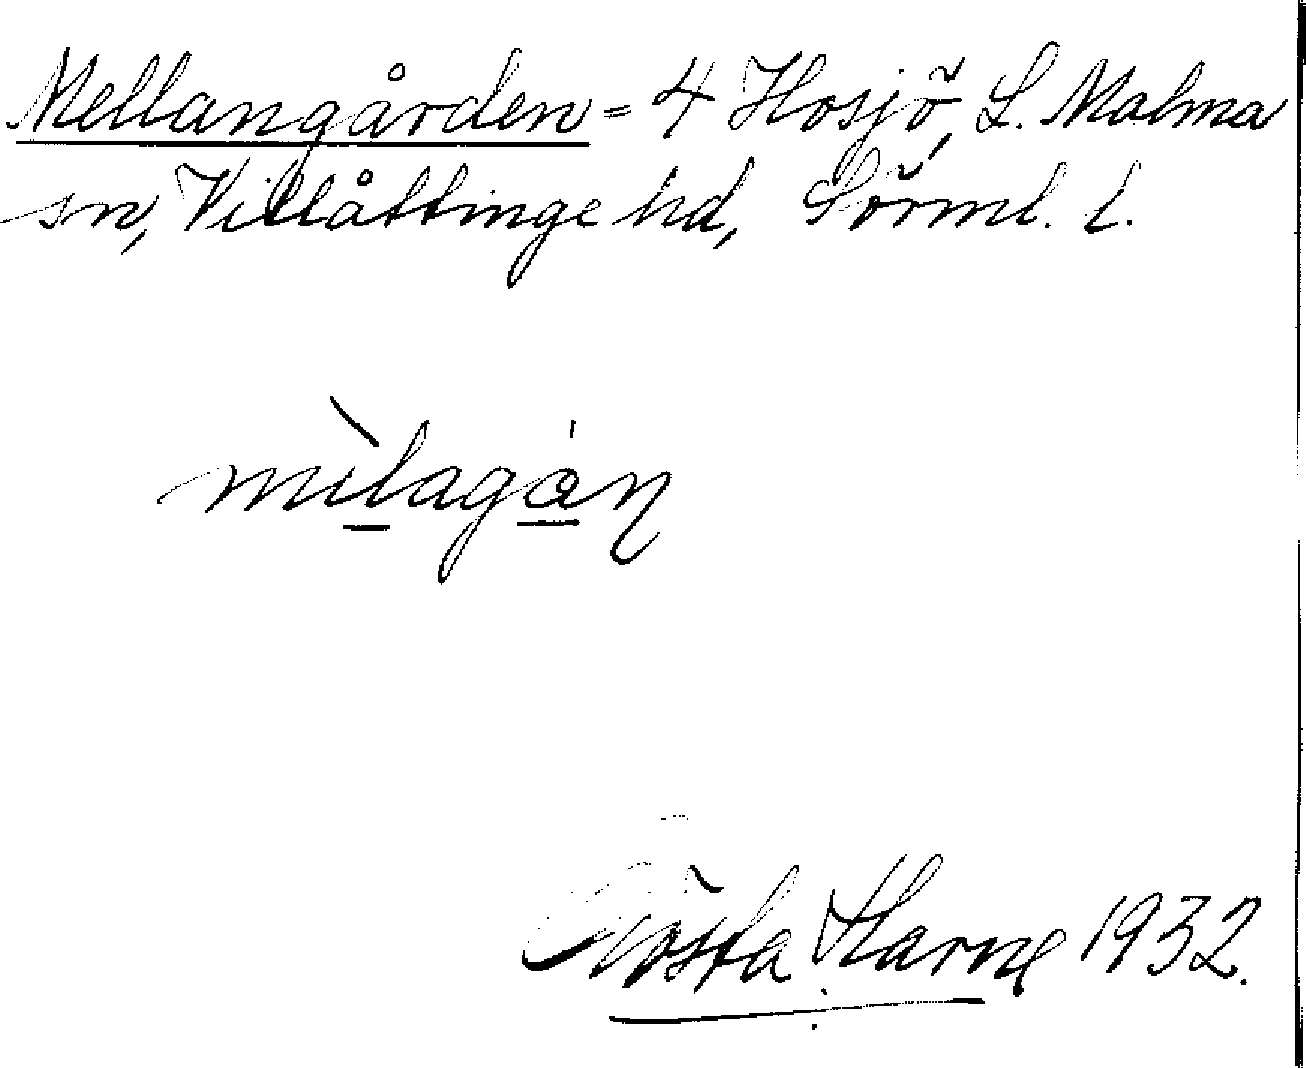 Mellangården = 4 Hosjö, L. Malma
sn, Villåttinge hd, Sörml. l.
mìlagån
Gösta Harne 1932.